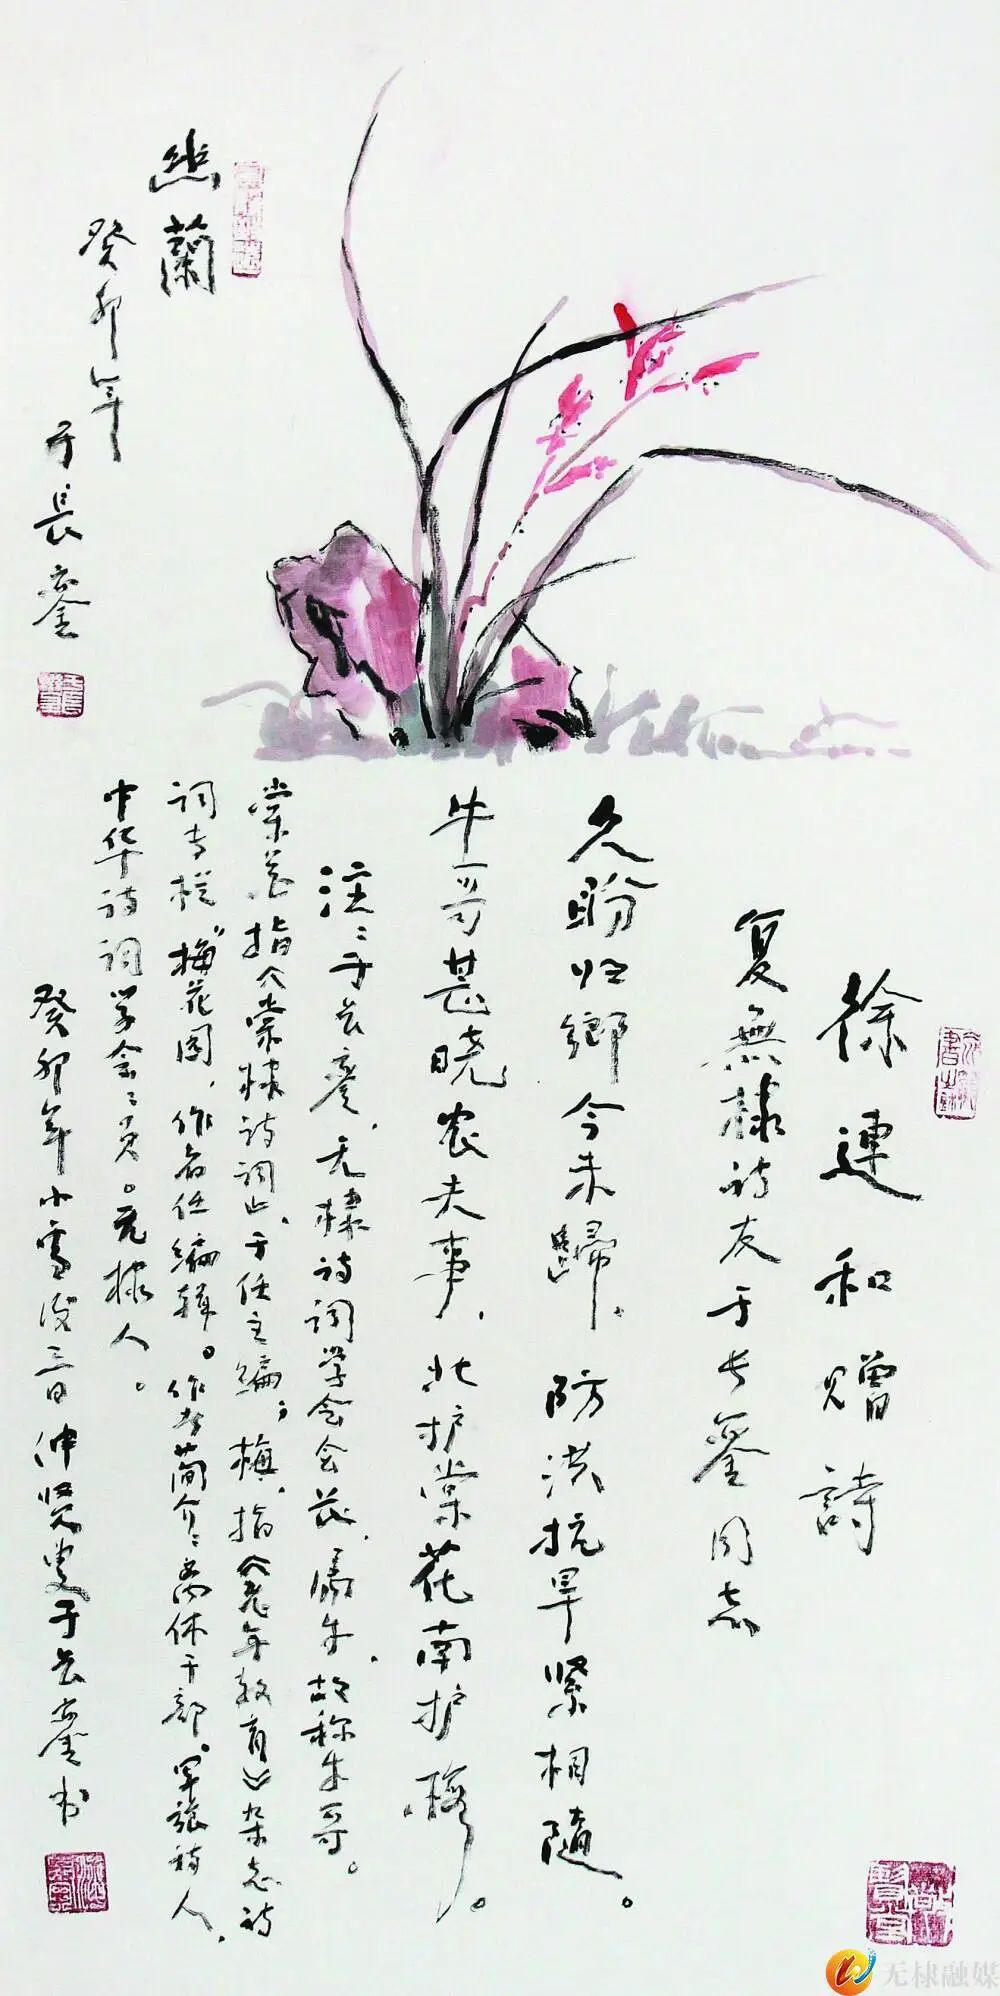 幽蘭
癸卯年
于長鋆
徐連和贈詩
复無棣诗友于长鋆同志
久盼归鄉今未歸，防洪抗旱紧相随。
牛哥甚晓农夫事，北护棠花南护梅。
注：于长鋆，无棣诗词学会会员，属牛，故称牛哥。
棠花，指《棠棣诗词》，于任主编；梅，指《老年教育》杂志诗
词专栏“梅花园”，作者任编辑。作者简介：离休干部。军旅诗人，
中华诗词学会会员。无棣人。
癸卯年小雪后三日仲贤叟于长鋆书
无棣融媒